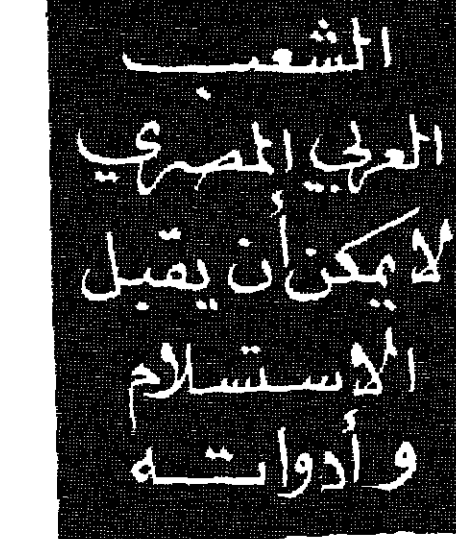 الشعب
العربي المصري
لا يمكن أن يقبل
الاستسلام
وأدواته